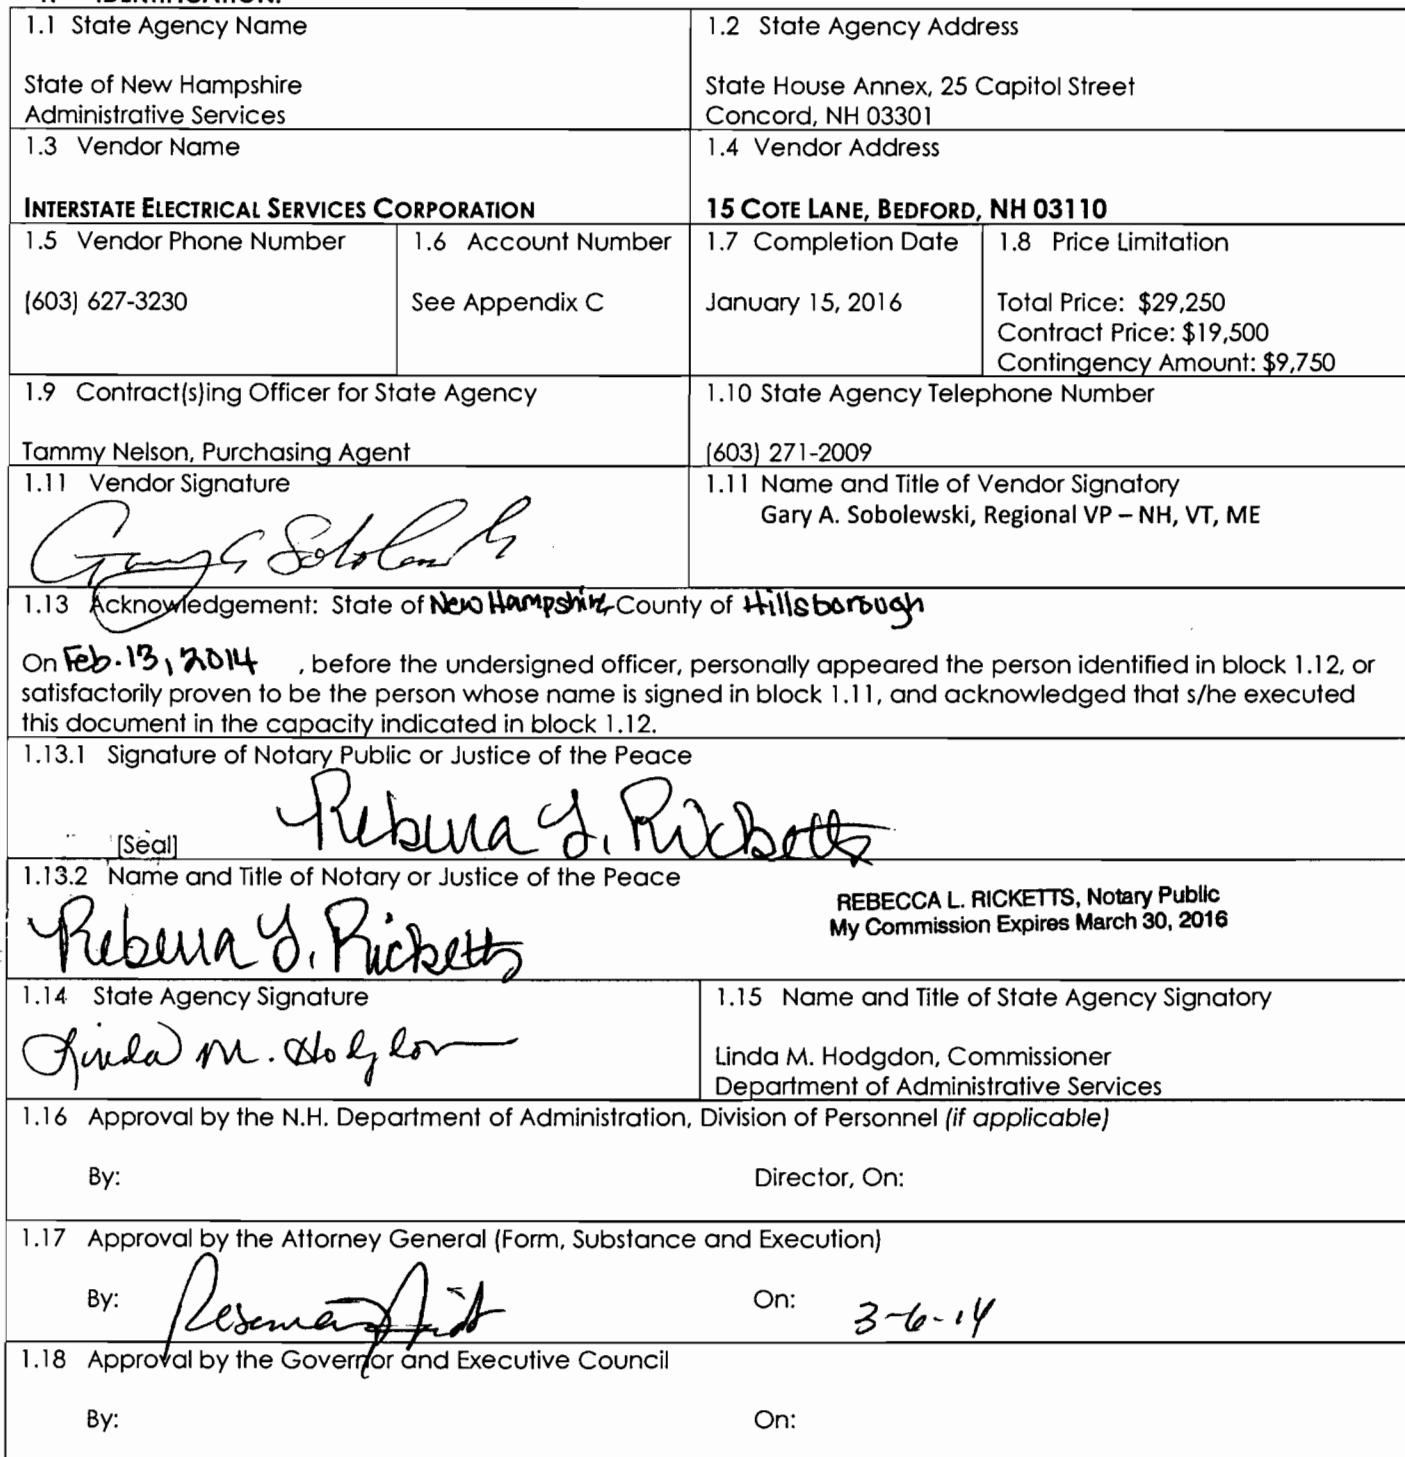 1.1 State Agency Name
State of New Hampshire
Administrative Services
1.2 State Agency Address
State House Annex, 25 Capitol Street
Concord, NH 03301
1.3 Vendor Name
INTERSTATE ELECTRICAL SERVICES CORPORATION
1.4 Vendor Address
15 COTE LANE, BEDFORD, NH 03110
1.5 Vendor Phone Number
(603) 627-3230
1.6 Account Number
See Appendix C
1.7 Completion Date
January 15, 2016
1.8 Price Limitation
Total Price: $29,250
Contract Price: $19,500
Contingency Amount: $9,750
1.9 Contract(s)ing Officer for State Agency
Tammy Nelson, Purchasing Agent
1.10 State Agency Telephone Number
(603) 271-2009
1.11 Vendor Signature
1.11 Name and Title of Vendor Signatory
Gary A. Sobolewski, Regional VP – NH, VT, ME
1.13 Acknowledgement: State of New Hampshire County of Hillsborough
On Feb. 13, 2014 , before the undersigned officer, personally appeared the person identified in block 1.12, or
satisfactorily proven to be the person whose name is signed in block 1.11, and acknowledged that s/he executed
this document in the capacity indicated in block 1.12.
1.13.1 Signature of Notary Public or Justice of the Peace
Rebecca L. Ricketts
[Seal]
1.13.2 Name and Title of Notary or Justice of the Peace
REBECCA L. RICKETTS, Notary Public
My Commission Expires March 30, 2016
Rebecca L. Ricketts
1.14 State Agency Signature
Linda M. Hodgdon
1.15 Name and Title of State Agency Signatory
Linda M. Hodgdon, Commissioner
Department of Administrative Services
1.16 Approval by the N.H. Department of Administration, Division of Personnel (if applicable)
By: Director, On:
1.17 Approval by the Attorney General (Form, Substance and Execution)
By: On: 3-6-14
1.18 Approval by the Governor and Executive Council
By: On: